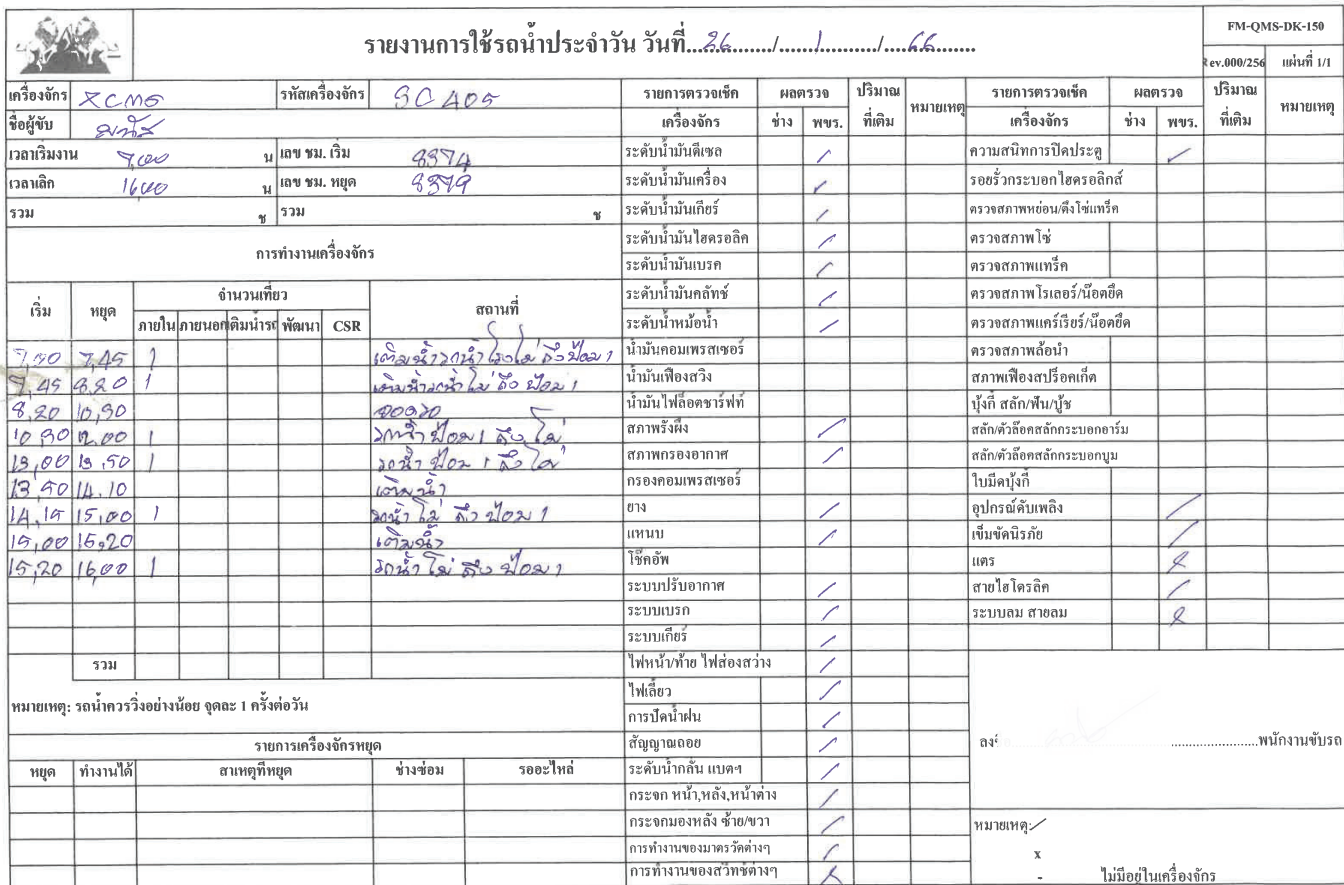 FM-QMS-DK-150
รายงานการใช้รถน้ำประจำวัน วันที่...26......./......1.........../....66.......
Rev.000/256 แผ่นที่ 1/1
เครื่องจักร XCMG รหัสเครื่องจักร SC 405
ชื่อผู้ขับ มนัส
เวลาเริ่มงาน 7,00 น เลข ชม. เริ่ม 8374
เวลาเลิก 16,00 น เลข ชม. หยุด 8379
รวม ช รวม ช
การทำงานเครื่องจักร
เริ่ม หยุด จำนวนเที่ยว สถานที่
ภายใน ภายนอก เติมน้ำรถ พัฒนา CSR
7,00 7,45 1 เติมน้ำรถน้ำโรงโม่ ถึงป้อม 1
7,45 8,20 1 เติมน้ำรดน้ำ โม่ ถึง ป้อม 1
8,20 10,30 จอดรอ
10,30 12,00 1 รดน้ำ ป้อม 1 ถึง โม่
13,00 13,50 1 รดน้ำ ป้อม 1 ถึง โม่
13,50 14,10 เติมน้ำ
14,15 15,00 1 รดน้ำ โม่ ถึง ป้อม 1
15,00 15,20 เติมน้ำ
15,20 16,00 1 รดน้ำ โม่ ถึง ป้อม 1
รวม
หมายเหตุ: รถน้ำควรวิ่งอย่างน้อย จุดละ 1 ครั้งต่อวัน
รายการเครื่องจักรหยุด
หยุด ทำงานได้ สาเหตุที่หยุด ช่างซ่อม รออะไหล่
รายการตรวจเช็ค ผลตรวจ ปริมาณ หมายเหตุ
เครื่องจักร ช่าง พขร. ที่เติม
ระดับน้ำมันดีเซล /
ระดับน้ำมันเครื่อง /
ระดับน้ำมันเกียร์ /
ระดับน้ำมันไฮดรอลิค /
ระดับน้ำมันเบรค /
ระดับน้ำมันคลัทช์ /
ระดับน้ำหม้อน้ำ /
น้ำมันคอมเพรสเซอร์
น้ำมันเฟืองสวิง
น้ำมันไฟล็อตชาร์ฟท์
สภาพรังผึ้ง /
สภาพกรองอากาศ /
กรองคอมเพรสเซอร์
ยาง /
แหนบ /
โช๊คอัพ
ระบบปรับอากาศ /
ระบบเบรก /
ระบบเกียร์ /
ไฟหน้า/ท้าย ไฟส่องสว่าง /
ไฟเลี้ยว /
การปัดน้ำฝน /
สัญญาณถอย /
ระดับน้ำกลั่น แบตฯ /
กระจก หน้า,หลัง,หน้าต่าง /
กระจกมองหลัง ซ้าย/ขวา /
การทำงานของมาตรวัดต่างๆ /
การทำงานของสวิทช์ต่างๆ x
รายการตรวจเช็ค ผลตรวจ ปริมาณ หมายเหตุ
เครื่องจักร ช่าง พขร. ที่เติม
ความสนิทการปิดประตู /
รอยรั่วกระบอกไฮดรอลิกส์
ตรวจสภาพหย่อน/ตึงโซ่แทร็ค
ตรวจสภาพโซ่
ตรวจสภาพแทร็ค
ตรวจสภาพโรเลอร์/น๊อตยึด
ตรวจสภาพแคร์เรียร์/น๊อตยึด
ตรวจสภาพล้อนำ
สภาพเฟืองสปร็อคเก็ต
บุ้งกี๋ สลัก/ฟัน/บู๊ช
สลัก/ตัวล๊อคสลักกระบอกอาร์ม
สลัก/ตัวล๊อคสลักกระบอกบูม
ใบมีดบุ้งกี๋
อุปกรณ์ดับเพลิง /
เข็มขัดนิรภัย /
แตร x
สายไฮโดรลิค /
ระบบลม สายลม x
ลงชื่อ ....................พนักงานขับรถ
หมายเหตุ: /
x
- ไม่มีอยู่ในเครื่องจักร